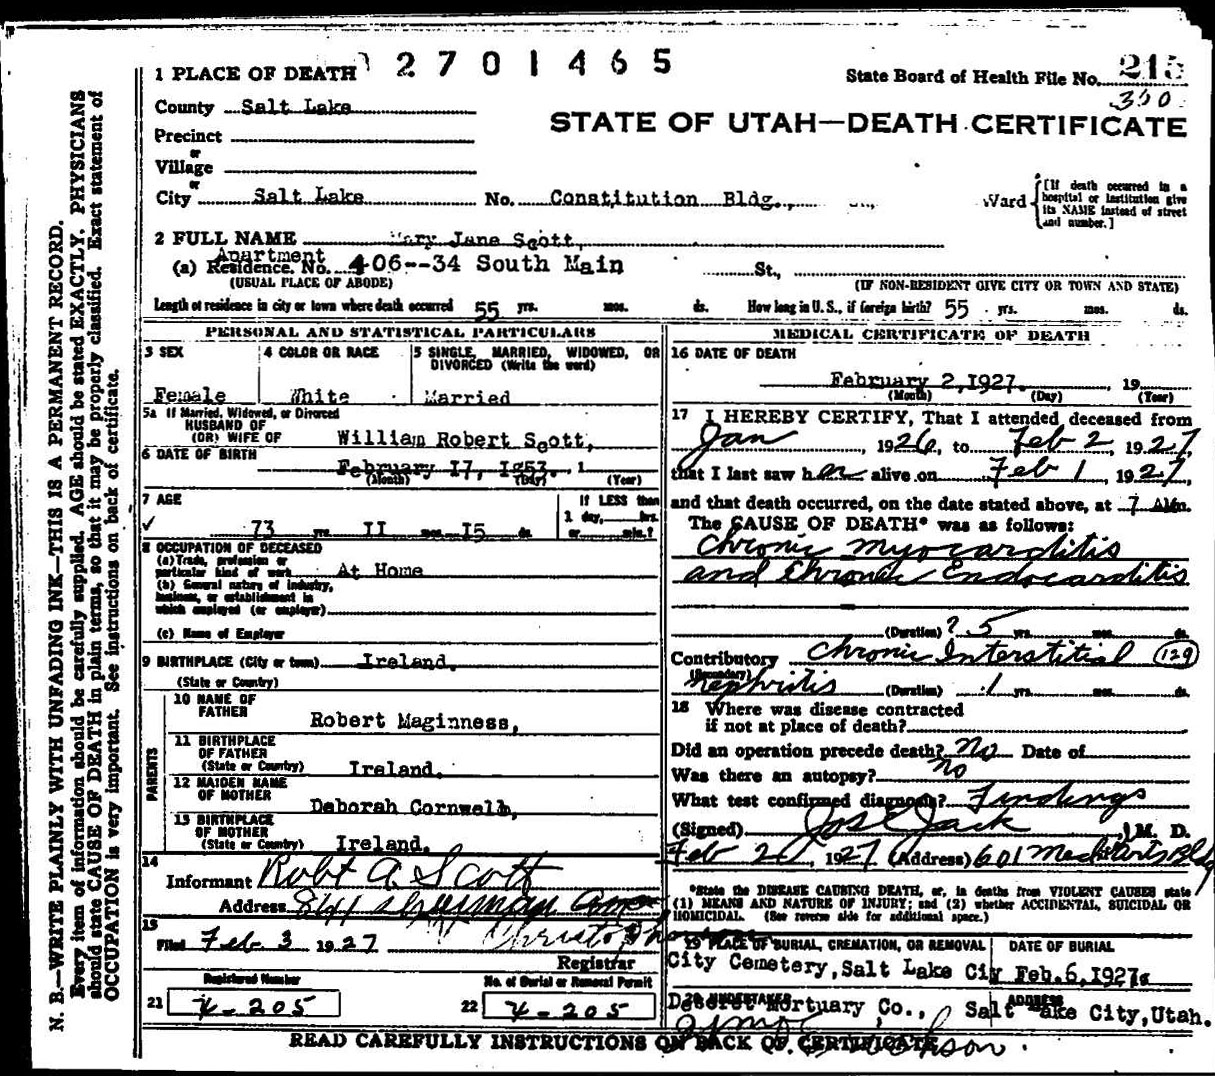 2701465
State Board of Health File No. 215
350
1 PLACE OF DEATH
County Salt Lake
STATE OF UTAH—DEATH CERTIFICATE
Precinct
or
Village
or
City Salt Lake No. Constitution Bldg., St., Ward
[If death occurred in a hospital or institution give its NAME instead of street and number.]
2 FULL NAME Mary Jane Scott,
Apartment
(a) Residence. No. 406--34 South Main St.,
(USUAL PLACE OF ABODE) (IF NON-RESIDENT GIVE CITY OR TOWN AND STATE)
Length of residence in city or town where death occurred 55 yrs. mos. ds. How long in U. S., if foreign birth? 55 yrs. mos. ds.
PERSONAL AND STATISTICAL PARTICULARS
3 SEX
Female
4 COLOR OR RACE
White
5 SINGLE, MARRIED, WIDOWED, OR DIVORCED (Write the word)
Married
5a If Married, Widowed, or Divorced
HUSBAND OF
(OR) WIFE OF William Robert Scott,
6 DATE OF BIRTH
February 17, 1853. 1
(Month) (Day) (Year)
7 AGE
73 yrs. II mos. I5 ds.
If LESS than
1 day, hrs.
or min.?
8 OCCUPATION OF DECEASED
(a) Trade, profession or
particular kind of work At Home
(b) General nature of industry,
business, or establishment in
which employed (or employer)
(c) Name of Employer
9 BIRTHPLACE (City or town) Ireland.
(State or Country)
PARENTS
10 NAME OF FATHER
Robert Maginness,
11 BIRTHPLACE OF FATHER
(State or Country) Ireland.
12 MAIDEN NAME OF MOTHER
Deborah Cornwell,
13 BIRTHPLACE OF MOTHER
(State or Country) Ireland.
14
Informant Robt A. Scott
Address Sherman
15
Filed Feb 3 1927
Registrar
Registered Number
21 205
No. of Burial or Removal Permit
22 205
MEDICAL CERTIFICATE OF DEATH
16 DATE OF DEATH
February 2,1927. , 19
(Month) (Day) (Year)
17 I HEREBY CERTIFY, That I attended deceased from
Jan , 1926, to Feb 2, 1927,
that I last saw her alive on Feb 1 1927,
and that death occurred, on the date stated above, at 7 AM.
The CAUSE OF DEATH* was as follows:
Chronic myocarditis
and Chronic Endocarditis
(Duration) ? 5 yrs. mos. ds.
Contributory Chronic Interstitial 129
(Secondary)
Nephritis (Duration) 1 yrs. mos. ds.
18 Where was disease contracted
if not at place of death?
Did an operation precede death? No Date of
Was there an autopsy? No
What test confirmed diagnosis? Findings
(Signed) Jos E Jack , M. D.
Feb 2 , 1927 (Address) 601 Med Arts Bldg
*State the DISEASE CAUSING DEATH, or, in deaths from VIOLENT CAUSES state
(1) MEANS AND NATURE OF INJURY; and (2) whether ACCIDENTAL, SUICIDAL OR
HOMICIDAL. (See reverse side for additional space.)
19 PLACE OF BURIAL, CREMATION, OR REMOVAL
City Cemetery, Salt Lake City
DATE OF BURIAL
Feb.6,1927
20 UNDERTAKER
Deseret Mortuary Co.,
ADDRESS
Salt Lake City, Utah.
READ CAREFULLY INSTRUCTIONS ON BACK OF CERTIFICATE
N. B.—WRITE PLAINLY WITH UNFADING INK—THIS IS A PERMANENT RECORD.
Every item of information should be carefully supplied. AGE should be stated EXACTLY. PHYSICIANS
should state CAUSE OF DEATH in plain terms, so that it may be properly classified. Exact statement of
OCCUPATION is very important. See instructions on back of certificate.